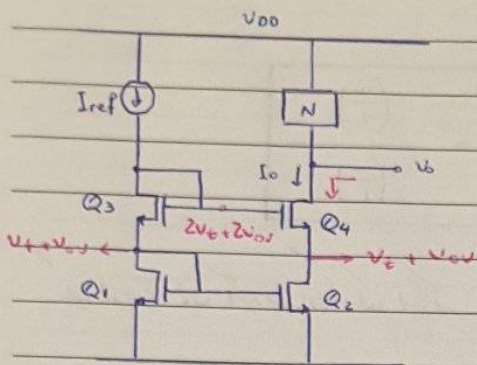 VDD
Iref
N
Io
vo
Q3
2Vt+2Vov
Q4
Vt+Vov
Vt+Vov
Q1
Q2